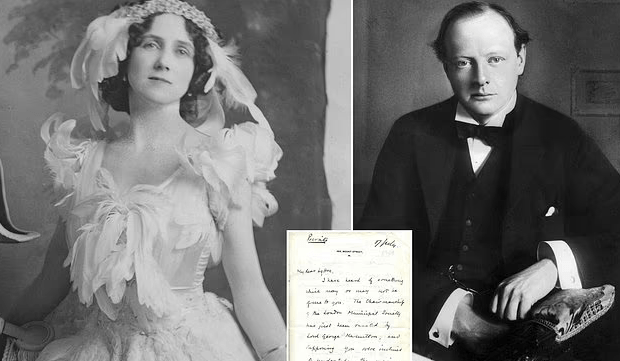 Private
7 July
105, MOUNT STREET,
W.
My dear Lytton,
I have heard of something
which may or may not be
of use to you. The Chairmanship
of the London Municipal Society
has just been vacated by
Lord George Hamilton; and
supposing you were inclined